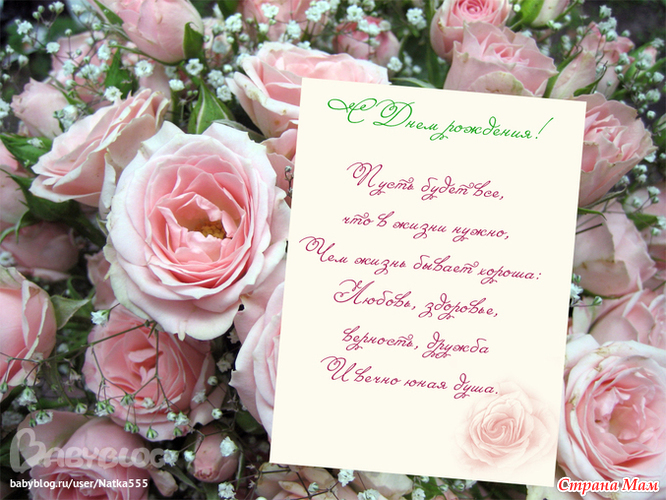 С Днем рождения!
Пусть будет все,
что в жизни нужно,
Чем жизнь бывает хороша:
Любовь, здоровье,
верность, дружба
И вечно юная душа.
BABYBLOG
babyblog.ru/user/Natka555
Страна Мам